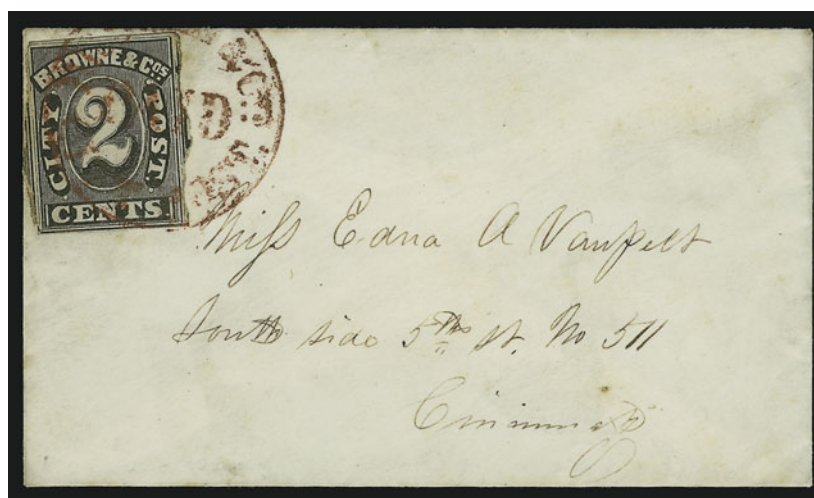 BROWNE & COS
CITY POST.
2
CENTS.
& CO
Miss Edna A Vanpelt
South side 5th st. No 511
Cincinnati